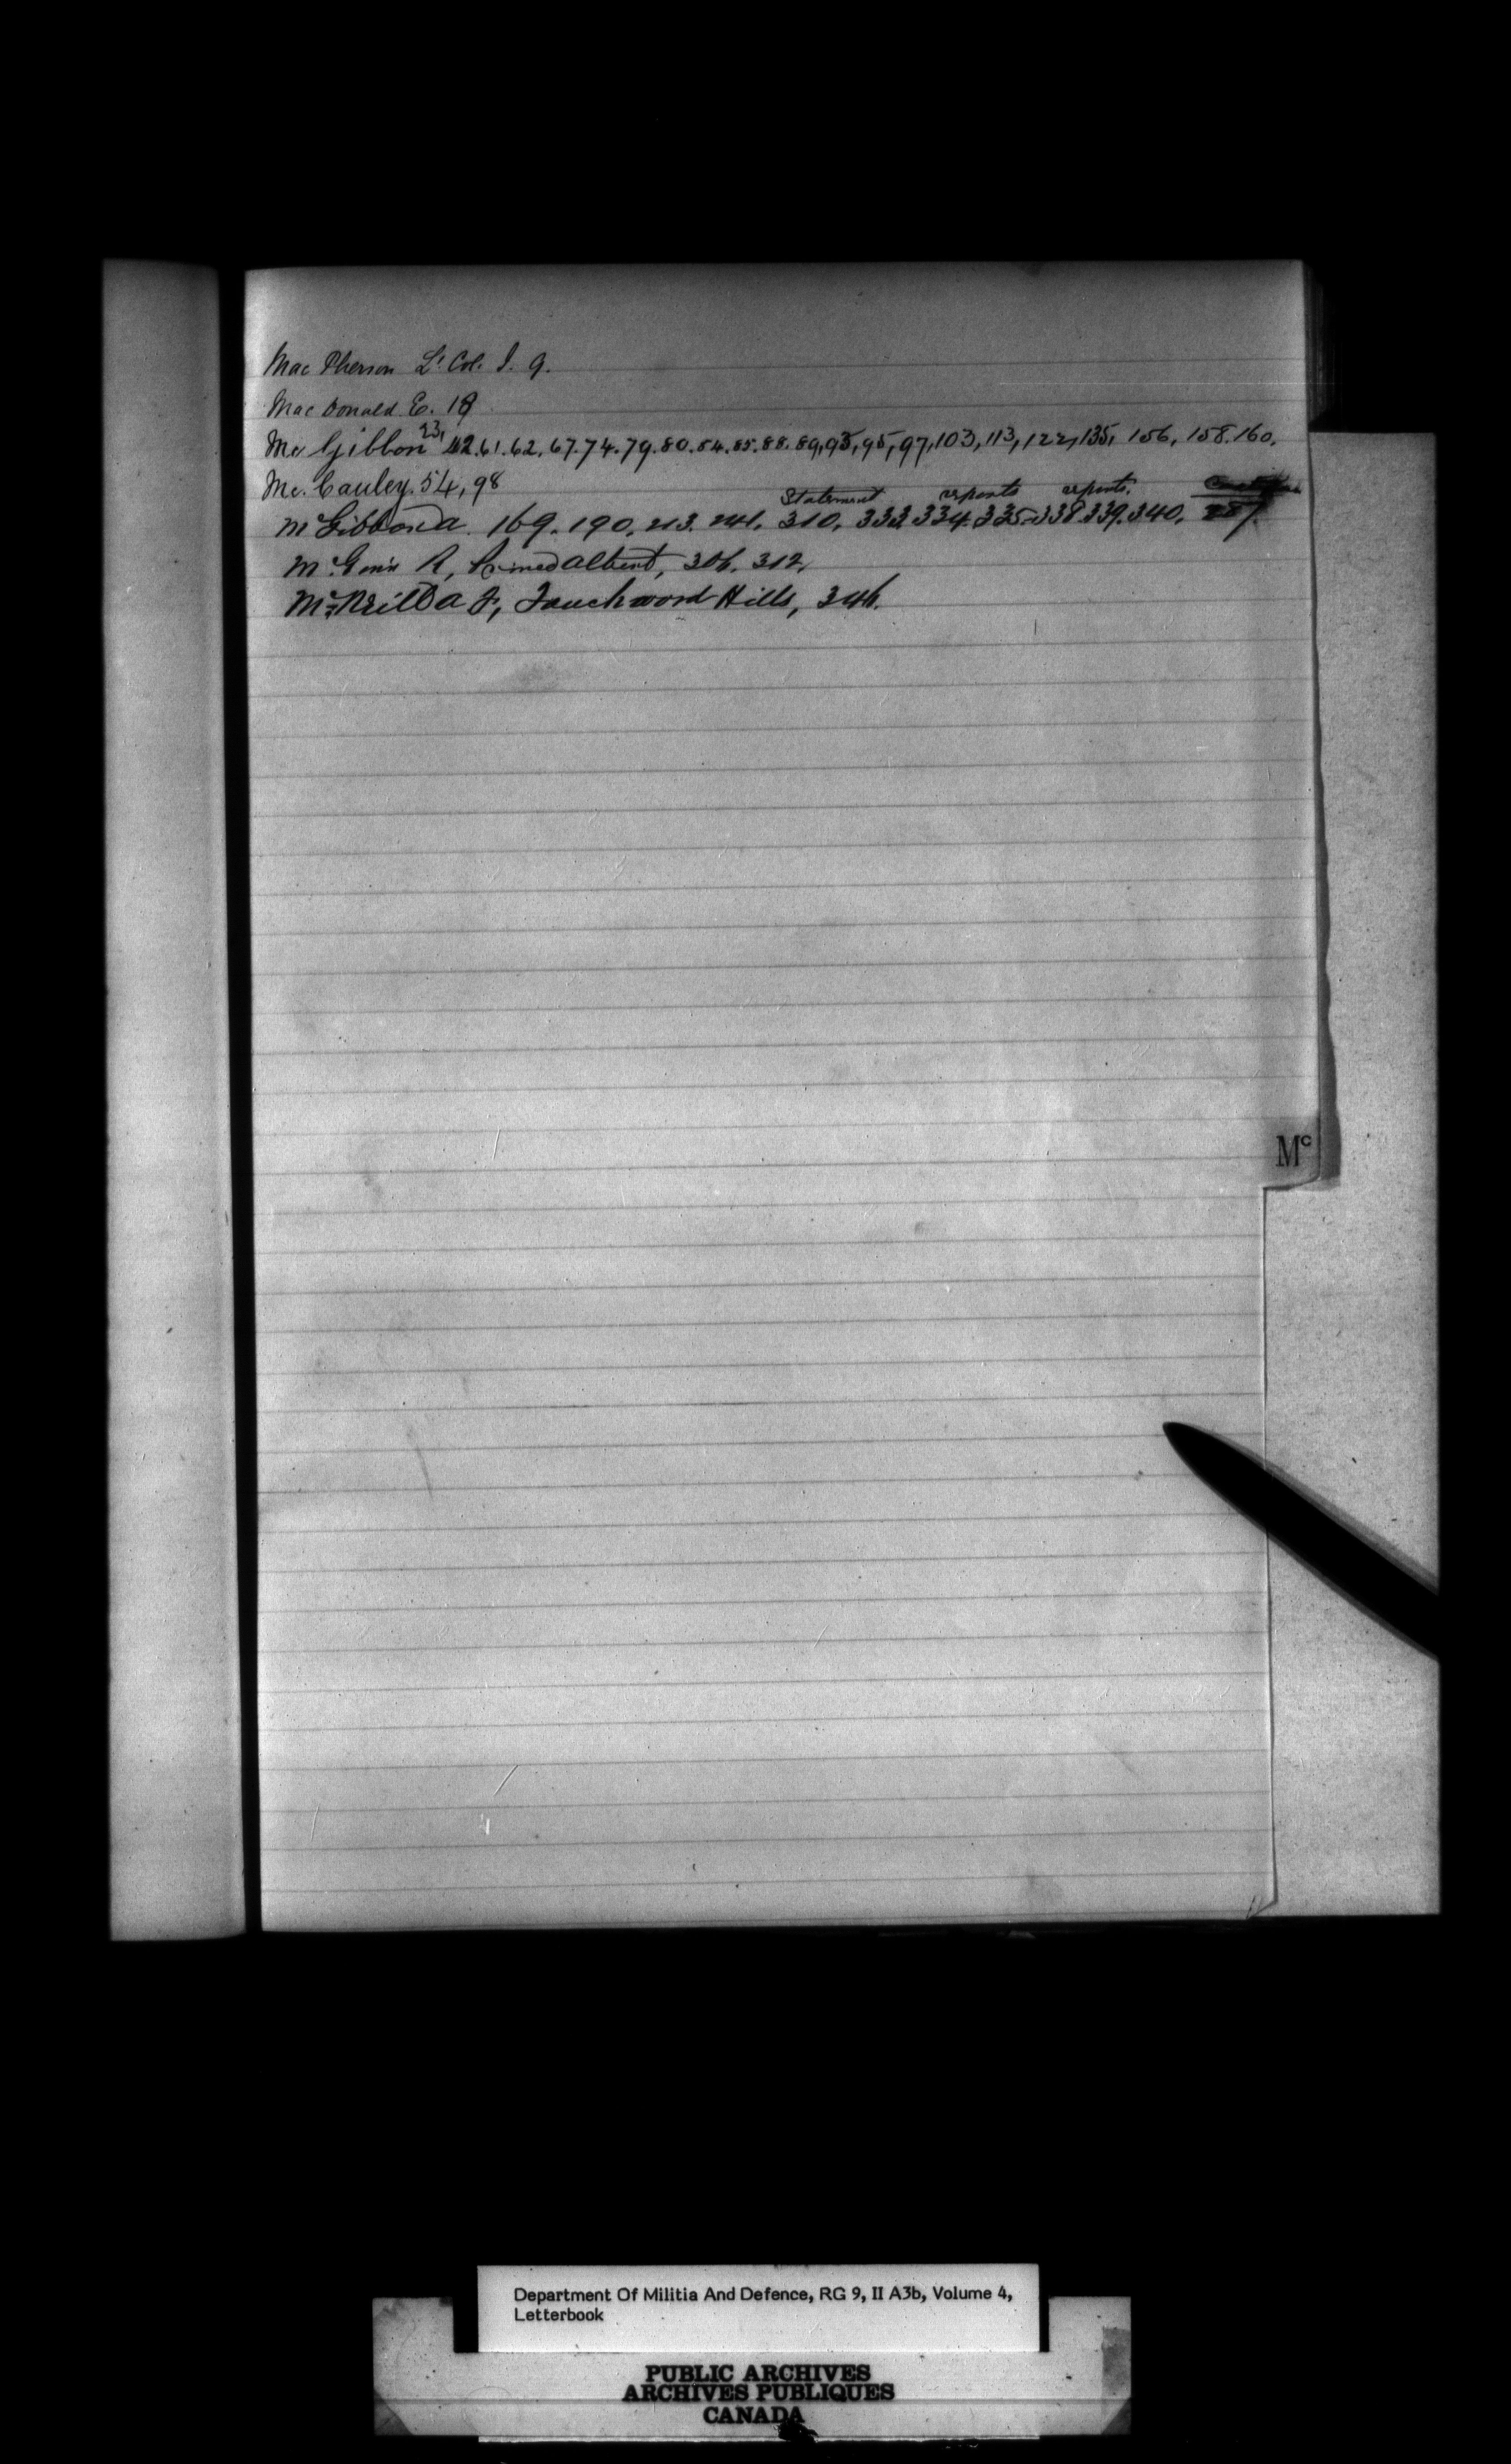 Mac Pherson Lt Col. J. 9.
Mac Donald E. 18
23,
Mc Gibbon 42.61.62.67.74.79.80.84.85.88.89,93,95,97,103,113,122,135, 156, 158.160.
Mc. Cauley. 54, 98
Statement reports reports.
McGibbon A. 169. 190. 213. 241. 310, 333. 334. 335. 338. 339. 340.
Mc R, Prince Albert, 306. 312.
Touchwood Hills, 346.
Mc
Department Of Militia And Defence, RG 9, II A3b, Volume 4,
Letterbook
PUBLIC ARCHIVES
ARCHIVES PUBLIQUES
CANADA